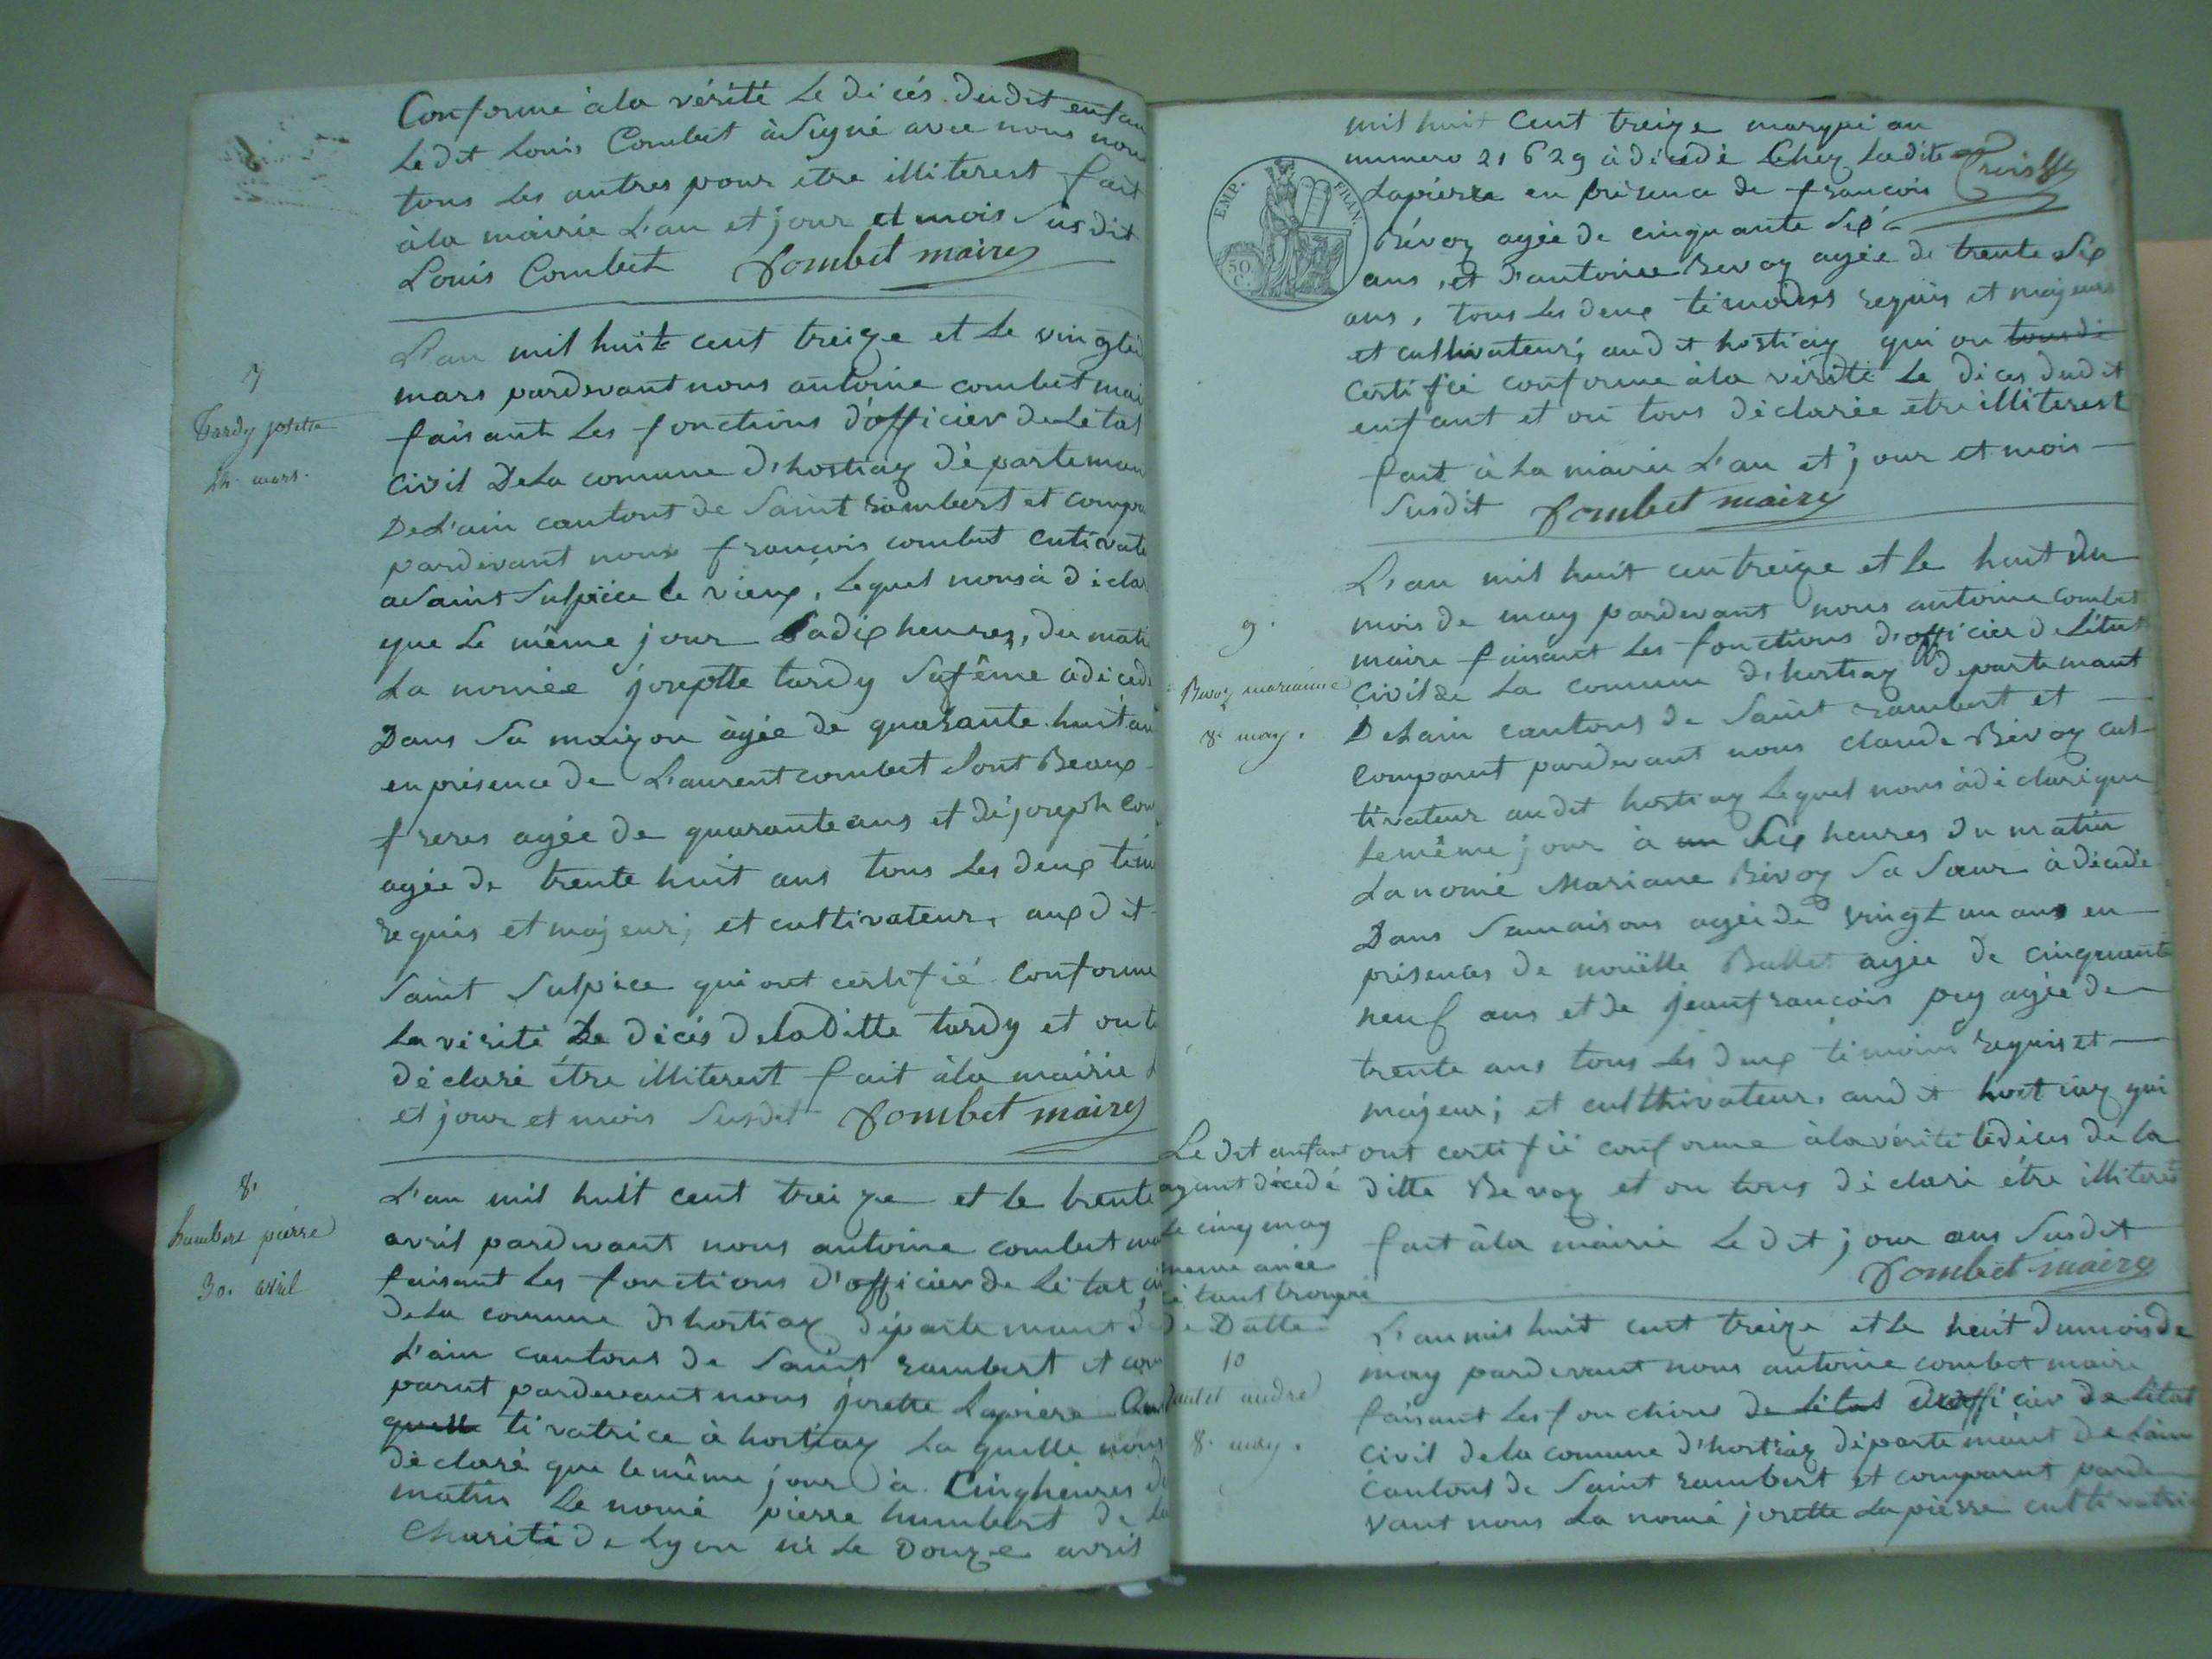 Conforme à la vérité Le dicés dudit enfan
Le dit Louis Combet à Signé avec nous non
tous les autres pour être illiterest fait
à la mairie L'an et jour et mois Susdit
Louis Combet Combet maire
L'an mil huit cent treize et le vingt
7
mars pardevant nous antoine combet mai
Tardy josette
faisant Les fonctions d'officier de Létat
24. mars.
civil De La comune d'hostiaz départeman
De L'ain cantont de Saint rambert et compa
pardevant nous françois combet cutivate
a Saint Sulpice le vieux, Lequel nous à décla
que Le même jour à dix heures, du mati
La nomée joseptte tardy Safême a décéd
Dans Sa maizon âgée de quarante huit an
en présence de L'aurent combet Sont Beaux
freres agée de quarante ans et de joseph Com
agée de trente huit ans tous Les deux tém
requis et majeur; et cultivateur, auxdit
Saint Sulpice qui ont certifié Conforme
La vérité Le dicés de la Ditte tardy et ont
déclaré être illiterest fait à la mairie L
et jour et mois Susdit Combet maire
8.
L'an mil huit cent treize et le trente
humbert pierre
avril pardevant nous antoine combet ma
30. avril
faisant Les fonctions d'officier de Létat ci
de La comune d'hostiaz département de
L'ain cantons de Saint rambert et com
parut pardevant nous josette Lapierre Cul
quelle tivatrice à hostiaz La quelle nous
déclaré que le même jour à Cinq heures d
matin Le nomé pierre humbert de La
Charité de Lyon né Le Douze avril
mil huit Cent treize marqué au
numero 21629 à décédé Chez Ladite
Lapierre en présence de françois
Bévoz agée de cinquante Six
ans, et d'antoine Bevoz agée de trente Six
ans, tous Les deux témoins requis et majeurs
et cultivateur; audit hostiaz qui on tous di
Certifié conforme à la vérité Le dices dudit
enfant et on tous déclarée etre illiterest
fait à La mairie L'an et jour et mois
Susdit Combet maire
EMP. FRAN.
50 C.
L'an mil huit cen treize et Le huit du
9.
mois de may pardevant nous antoine combet
maire faisant Les fonctions d'officier de Létat
Bevoz marianne
Civil de La comune d'hostiaz departemant
8. may.
De Lain cantons de Saint rambert et
comparut pardevant nous claude Bévoz cul
tivateur audit hostiaz Lequel nous à déclaré que
le même jour à un Six heures du matin
La nomé Mariane Bévoz Sa Sœur à décédé
Dans Samaisons agée de vingt un ans en
présences de nouëlle Ballet agée de cinquante
neuf ans et de jeanfrancois pey agée de
trente ans tous Les deux témoins requis et
majeur; et cultthivateur. audit hostiaz qui
ont certifié conforme à la vérité Le dices de la
ditte Bevoz et on tous déclaré étre illiterés
fait à la mairie Le dit jour ans Susdit
Combet maire
Le dit anfant
ayant décédé
Le cinq may
meme anée
étant trompé
de Datte
10
L'an mil huit cent treize et Le heuit du mois de
may pardevant nous antoine combet maire
andré
faisant Les fonctions de Létat d'officier de Létat
8. may.
civil de la comune d'hostiaz département de Lain
Cantont de Saint rambert et comparut parde
vant nous La nomé josette Lapierre cultivatri